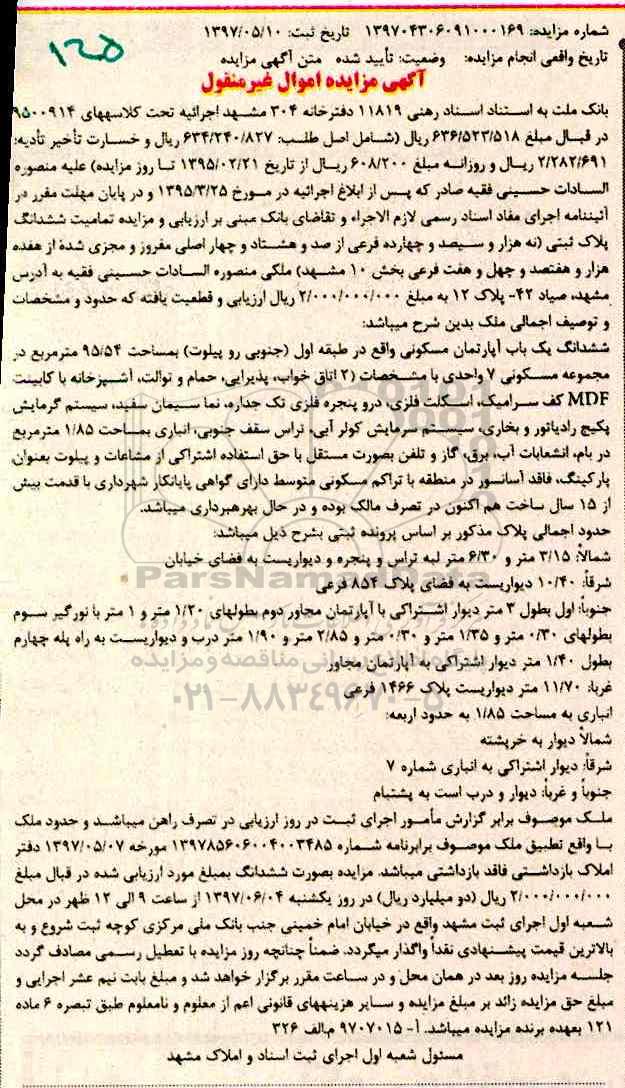 شماره مزایده: ۱۳۹۷۰۴۳۰۶۰۹۱۰۰۰۱۶۹ تاریخ ثبت: ۱۳۹۷/۰۵/۱۰
۱۲۵
تاریخ واقعی انجام مزایده: وضعیت: تأیید شده متن آگهی مزایده
آگهی مزایده اموال غیرمنقول
بانک ملت به استناد اسناد رهنی ۱۱۸۱۹ دفترخانه ۳۰۴ مشهد اجرائیه تحت کلاسههای ۹۵۰۰۹۱۴
در قبال مبلغ ۶۳۶/۵۲۳/۵۱۸ ریال (شامل اصل طلب: ۶۳۴/۲۴۰/۸۲۷ ریال و خسارت تأخیر تأدیه:
۲/۲۸۲/۶۹۱ ریال و روزانه مبلغ ۶۰۸/۲۰۰ ریال از تاریخ ۱۳۹۵/۰۲/۲۱ تا روز مزایده) علیه منصوره
السادات حسینی فقیه صادر که پس از ابلاغ اجرائیه در مورخ ۱۳۹۵/۳/۲۵ و در پایان مهلت مقرر در
آئیننامه اجرای مفاد اسناد رسمی لازم الاجراء و تقاضای بانک مبنی بر ارزیابی و مزایده تمامیت ششدانگ
پلاک ثبتی (نه هزار و سیصد و چهارده فرعی از صد و هشتاد و چهار اصلی مفروز و مجزی شده از هفده
هزار و هفتصد و چهل و هفت فرعی بخش ۱۰ مشهد) ملکی منصوره السادات حسینی فقیه به آدرس
مشهد، صیاد ۴۲- پلاک ۱۲ به مبلغ ۲/۰۰۰/۰۰۰/۰۰۰ ریال ارزیابی و قطعیت یافته که حدود و مشخصات
و توصیف اجمالی ملک بدین شرح میباشد:
ششدانگ یک باب آپارتمان مسکونی واقع در طبقه اول (جنوبی رو پیلوت) بمساحت ۹۵/۵۴ مترمربع در
مجموعه مسکونی ۷ واحدی با مشخصات (۲ اتاق خواب، پذیرایی، حمام و توالت، آشپزخانه با کابینت
MDF کف سرامیک، اسکلت فلزی، درو پنجره فلزی تک جداره، نما سیمان سفید، سیستم گرمایش
پکیج رادیاتور و بخاری، سیستم سرمایش کولر آبی، تراس سقف جنوبی، انباری بمساحت ۱/۸۵ مترمربع
در بام، انشعابات آب، برق، گاز و تلفن بصورت مستقل با حق استفاده اشتراکی از مشاعات و پیلوت بعنوان
پارکینگ، فاقد آسانسور در منطقه با تراکم مسکونی متوسط دارای گواهی پایانکار شهرداری با قدمت بیش
از ۱۵ سال ساخت هم اکنون در تصرف مالک بوده و در حال بهرهبرداری میباشد.
حدود اجمالی پلاک مذکور بر اساس پرونده ثبتی بشرح ذیل میباشد:
شمالاً: ۳/۱۵ متر و ۶/۳۰ متر لبه تراس و پنجره و دیواریست به فضای خیابان
شرقاً: ۱۰/۴۰ دیواریست به فضای پلاک ۸۵۴ فرعی
جنوباً: اول بطول ۳ متر دیوار اشتراکی با آپارتمان مجاور دوم بطولهای ۱/۲۰ متر و ۱ متر با نورگیر سوم
بطولهای ۰/۳۰ متر و ۱/۳۵ متر و ۰/۳۰ متر و ۲/۸۵ متر و ۱/۹۰ متر درب و دیواریست به راه پله چهارم
بطول ۱/۴۰ متر دیوار اشتراکی به آپارتمان مجاور
غرباً: ۱۱/۷۰ متر دیواریست پلاک ۱۴۶۶ فرعی
انباری به مساحت ۱/۸۵ به حدود اربعه:
شمالاً دیوار به خرپشته
شرقاً: دیوار اشتراکی به انباری شماره ۷
جنوباً و غرباً: دیوار و درب است به پشتبام
ملک موصوف برابر گزارش مأمور اجرای ثبت در روز ارزیابی در تصرف راهن میباشد و حدود ملک
با واقع تطبیق ملک موصوف برابرنامه شماره ۱۳۹۷۸۵۶۰۶۰۰۴۰۰۳۴۸۵ مورخه ۱۳۹۷/۰۵/۰۷ دفتر
املاک بازداشتی فاقد بازداشتی میباشد. مزایده بصورت ششدانگ بمبلغ مورد ارزیابی شده در قبال مبلغ
۲/۰۰۰/۰۰۰/۰۰۰ ریال (دو میلیارد ریال) در روز یکشنبه ۱۳۹۷/۰۶/۰۴ از ساعت ۹ الی ۱۲ ظهر در محل
شعبه اول اجرای ثبت مشهد واقع در خیابان امام خمینی جنب بانک ملی مرکزی کوچه ثبت شروع و به
بالاترین قیمت پیشنهادی نقداً واگذار میگردد. ضمناً چنانچه روز مزایده با تعطیل رسمی مصادف گردد
جلسه مزایده روز بعد در همان محل و در ساعت مقرر برگزار خواهد شد و مبلغ بابت نیم عشر اجرایی و
مبلغ حق مزایده زائد بر مبلغ مزایده و سایر هزینههای قانونی اعم از معلوم و نامعلوم طبق تبصره ۶ ماده
۱۲۱ بعهده برنده مزایده میباشد. آ- ۹۷۰۷۰۱۵ م.الف ۳۲۶
مسئول شعبه اول اجرای ثبت اسناد و املاک مشهد
ParsNamadData
۰۲۱-۸۸۳۴۹۶۷۰-۵